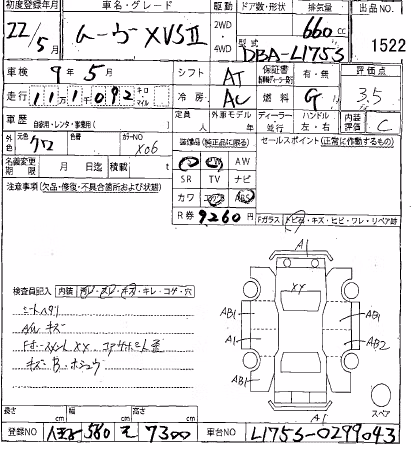 初度登録年月 車名・グレード 駆動 ドア数・形状 排気量 出品NO
22/5月 ムーヴ XVSⅡ 2WD・4WD 660cc 1522
型式 DBA-L175S
車検 9年5月 シフト AT 保証書 有・無 評価点 3.5
走行 111,092 キロ マイル 冷房 AC 燃料 G 内装評価 C
車歴 自家用・レンタ・事業用( ) 定員 人 外車モデル 年 ディーラー 並行 ハンドル 左・右
外色 元色 クロ 色番 カラーNO X06
装備品(純正品に限る) セールスポイント(正常に作動するもの)
PS PW AW
名義変更期限 月 日迄 積載 t
SR TV ナビ
注意事項(欠品・修復・不具合箇所および状態)
カワ エアB ABS
R券 9260円
Fガラス トビ石・キズ・ヒビ・ワレ・リペア( )
検査員記入 内装 汚レ・スレ・キズ・キレ・コゲ・穴
シートヘタリ
A/W キズ
A1
XX
AB1
AB1
A1
AB2
AB1
A1
スペア
長さ cm 幅 cm 高さ cm
登録NO 八王子 580 そ 7300 車台NO L175S-0299043